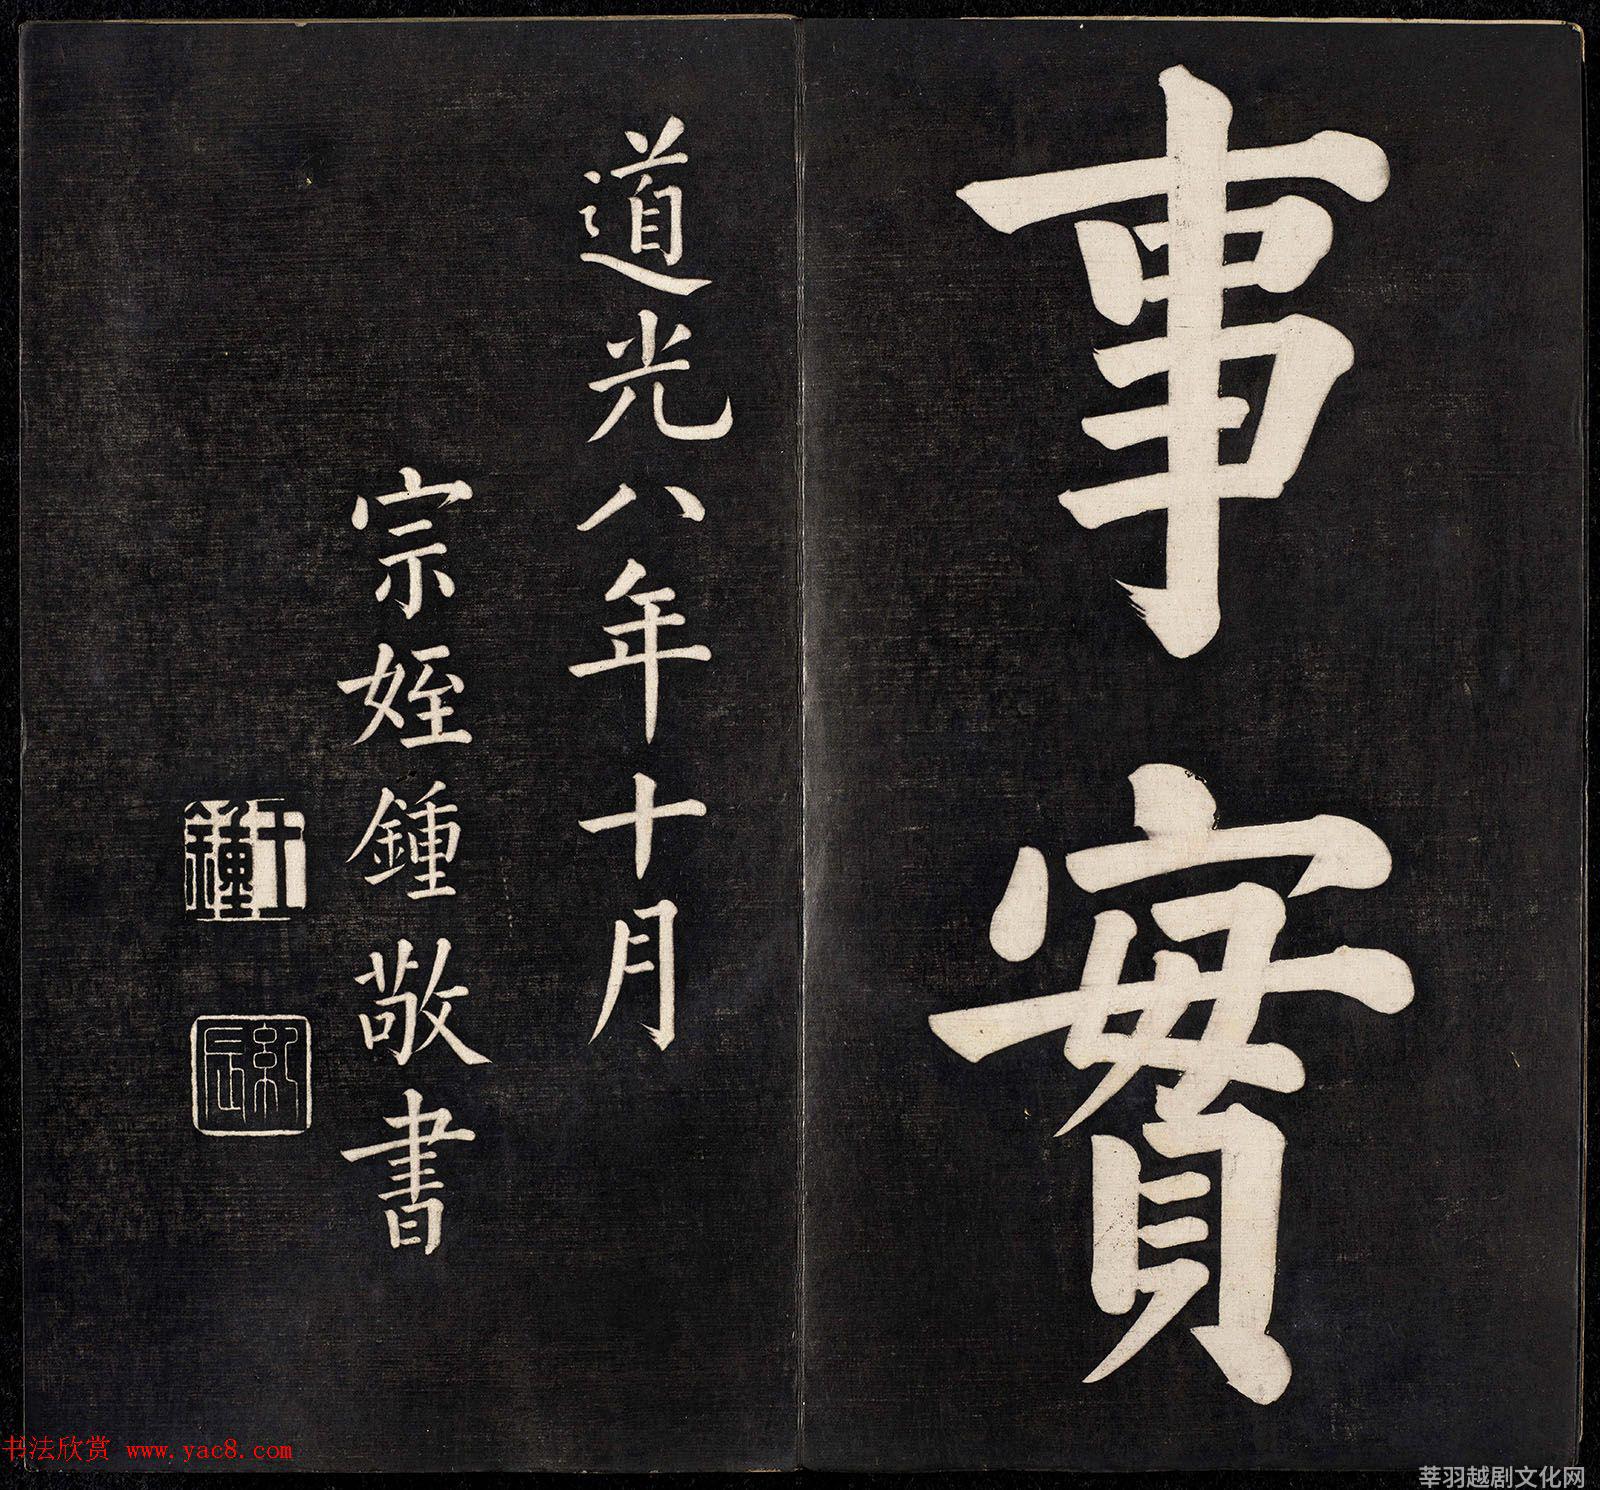 事實
道光八年十月
宗姪鍾敬書
王鍾
紀辰
书法欣赏 www.yac8.com
莘羽越剧文化网